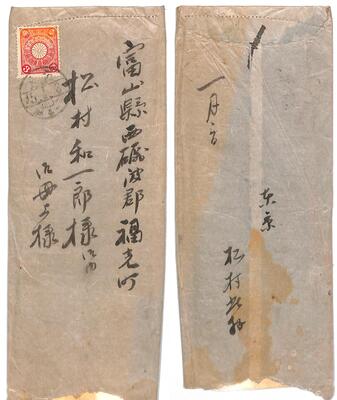 富山縣西礪波郡福光町
松村和一郎様
御母上様
一月
東京
松村